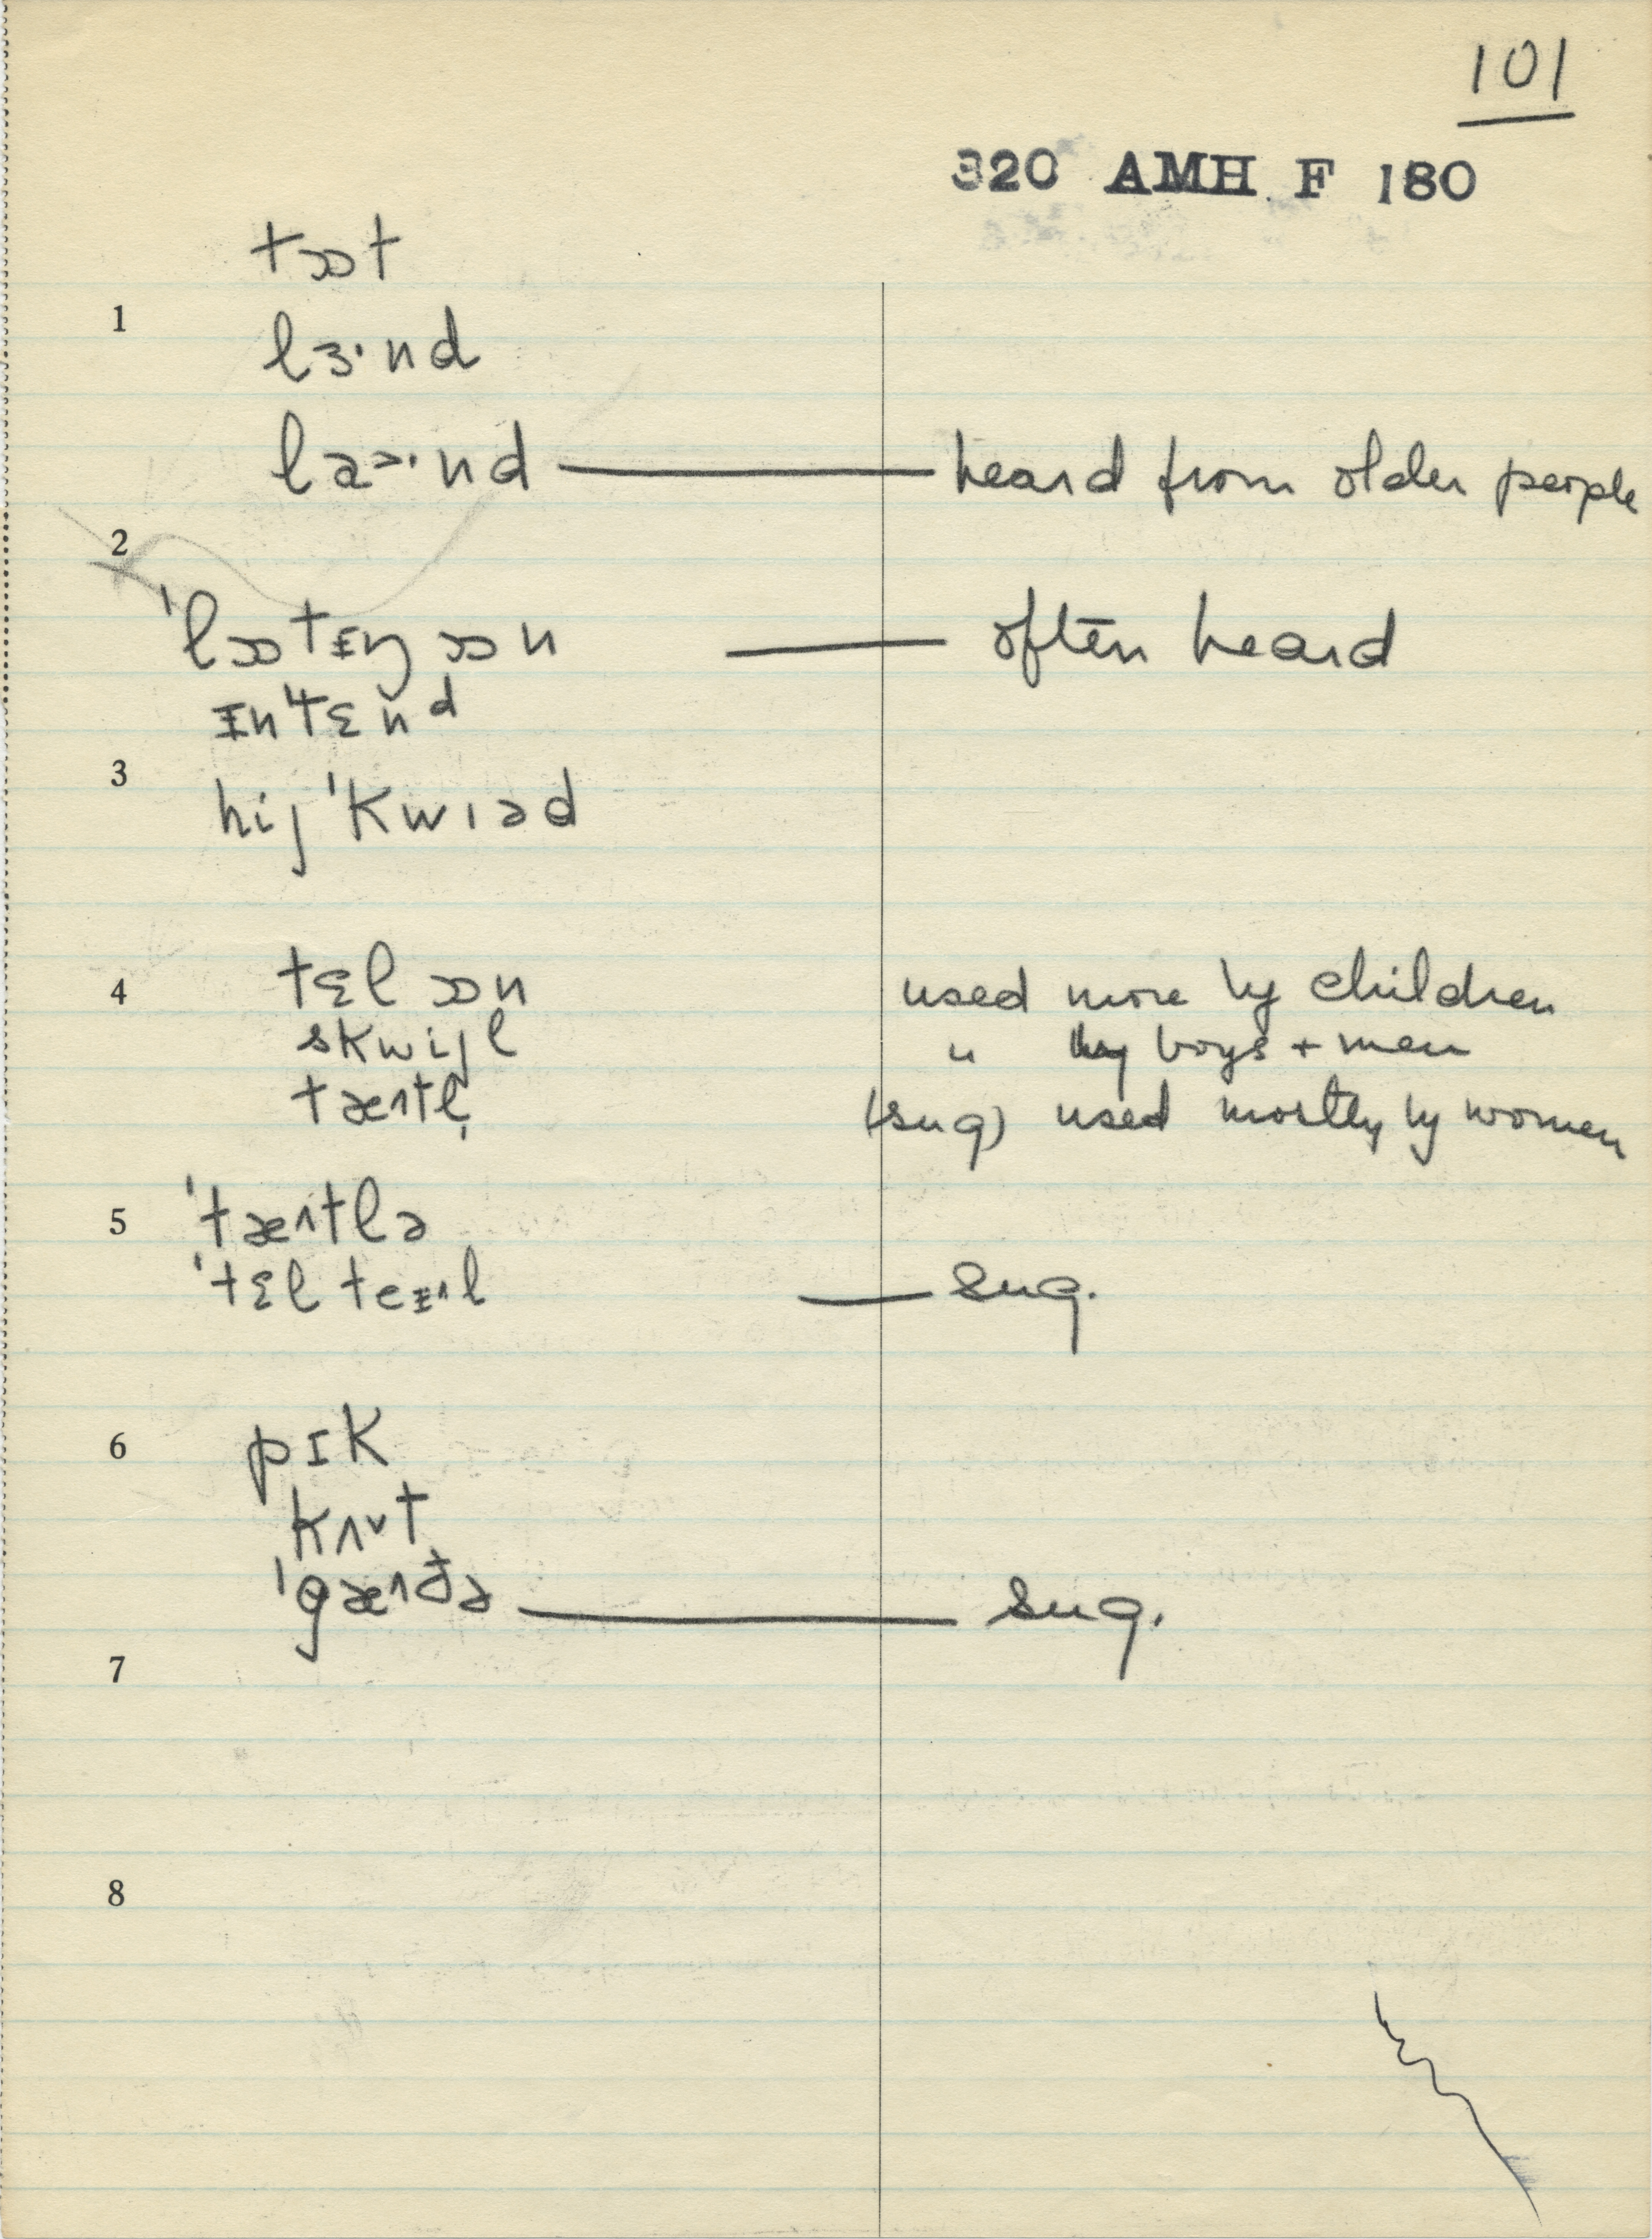 101
320 AMH F 180
tɔɒt
1
lɜ·nd
la>·nd — heard from older people
2
'lɔɒtɪŋ ɔɒn — often heard
ɪn'tɛnd
3
hij 'kwɪəd
4 tɛl ɔɒn used more by children
skwijl " by boys + men
tæ^tl̩ (sug) used mostly by women
5 'tæ^tlə
'tɛl teɪ^l — sug.
6 pɪk
kʌ˅t
'gæ^ðə — sug.
7
8